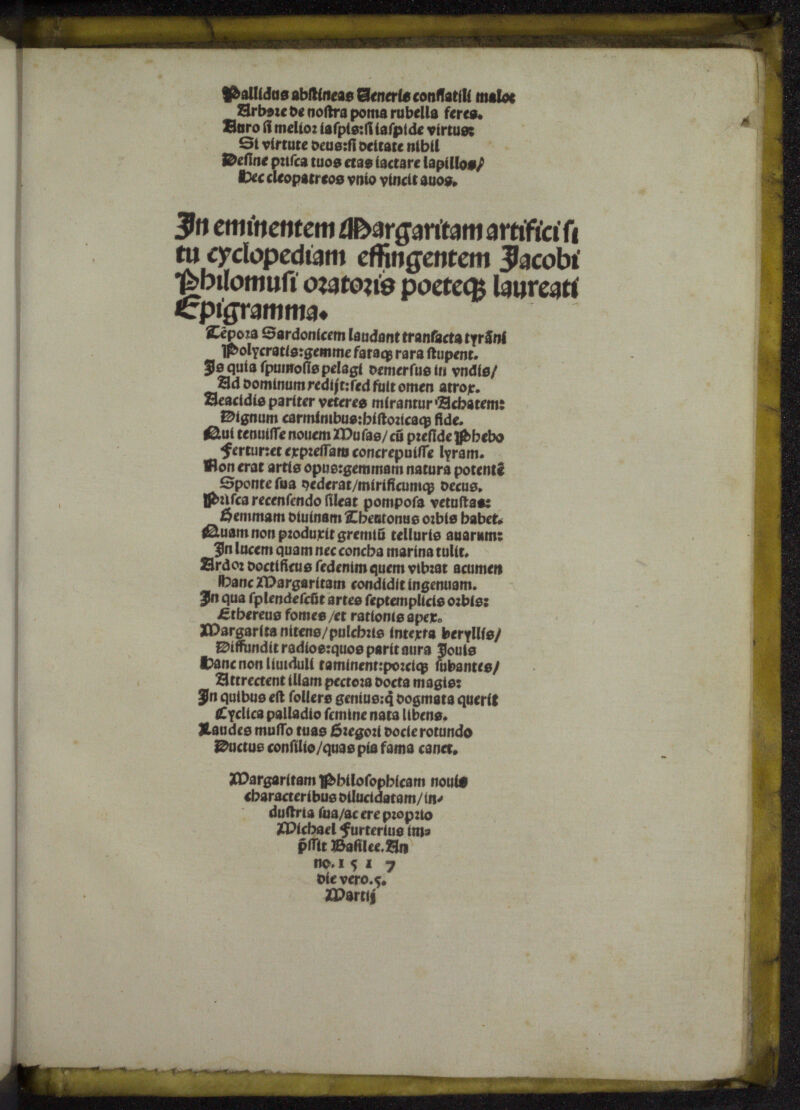 Pallidus abstineas Veneris conflatili malo:
Arbore de nostra poma rubella feres.
Auro si melior iaspis: si iaspide virtus:
Si virtute deus: si deitate nihil
Desine prisca tuos etas iactare lapillos/
Hec cleopatreos vnio vincit auos.
In eminentem Margaritam artifici si
tu cyclopediam effingentem Jacobi
Philomusi oratoris poeteqꝫ laureati
Epigramma.
Tēpora Sardonicem laudant transacta tyrāni
Polycratis: gemme fataqꝫ rara stupent.
Is quia spumosis pelagi demersus in vndis/
Ad dominum redijt: sed fuit omen atrox.
Aeacidis pariter veteres mirantur Achatem:
Dignum carminibus: historicaqꝫ fide.
Qui tenuisse nouem Musas/ cū preside Phebo
Fertur: et expressam concrepuisse lyram.
Non erat artis opus: gemmam natura potentē
Sponte sua dederat/ mirificumqꝫ decus.
Prisca recensendo sileat pomposa vetustas:
Gemmam diuinam Theutonus orbis habet.
Quam non produxit gremiū telluris auarum:
In lucem quam nec concha marina tulit.
Ardor doctificus sedenim quem vibrat acumen
Hanc Margaritam condidit ingenuam.
In qua splendescūt artes septemplicis orbis:
Ethereus fomes /et rationis apex.
Margarita nitens/ pulchris intexta beryllis/
Diffundit radios: quos parit aura Jouis
Hanc non liuiduli taminent: porciqꝫ subantes/
Attrectent illam pectora docta magis:
In quibus est sollers genius: q̄ dogmata querit
Cyclica palladio semine nata libens.
Laudes musso tuas Gregori docte rotundo
Ductus consilio/ quas pia fama canet.
Margaritam Philosophicam nouis
characteribus dilucidatam/ in⸗
dustria sua/ ac ere proprio
Michael Furterius im⸗
p̄ssit Basilee. An
no. 1 5 1 7
die vero. 5.
Martij